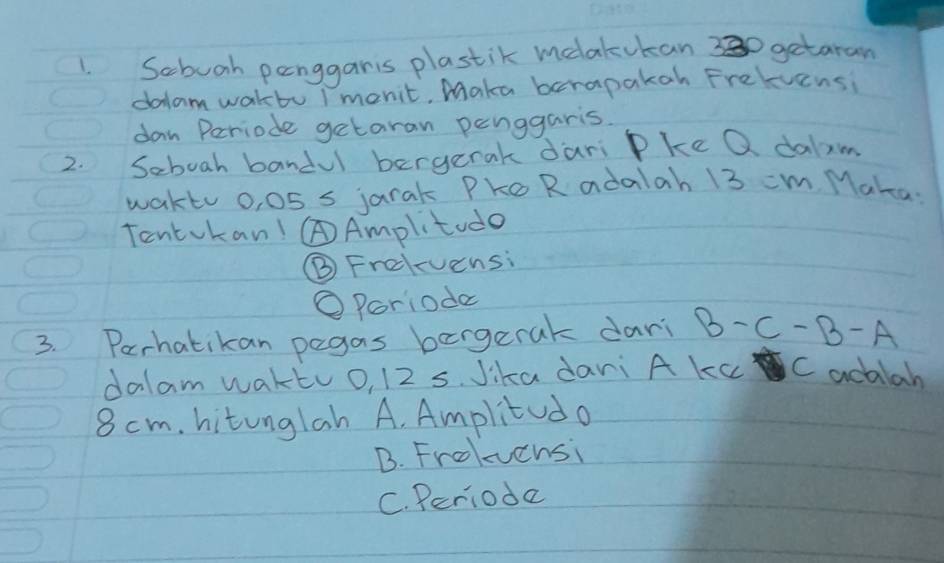 1. Sebuah penggaris plastik melakukan 330 getaran
dalam waktu 1 menit. Maka berapakah Frekuensi
dan Periode getaran penggaris.
2. Sebuah bandul bergerak dari P ke Q dalam
waktu 0,05 s jarak P ke R adalah 13 cm. Maka:
Tentukan! (A) Amplitudo
(B) Frekuensi
(C) Periode
3. Perhatikan pegas bergerak dari B-C-B-A
dalam waktu 0,12 s. Jika dari A ke C adalah
8 cm. hitunglah A. Amplitudo
B. Frekuensi
C. Periode